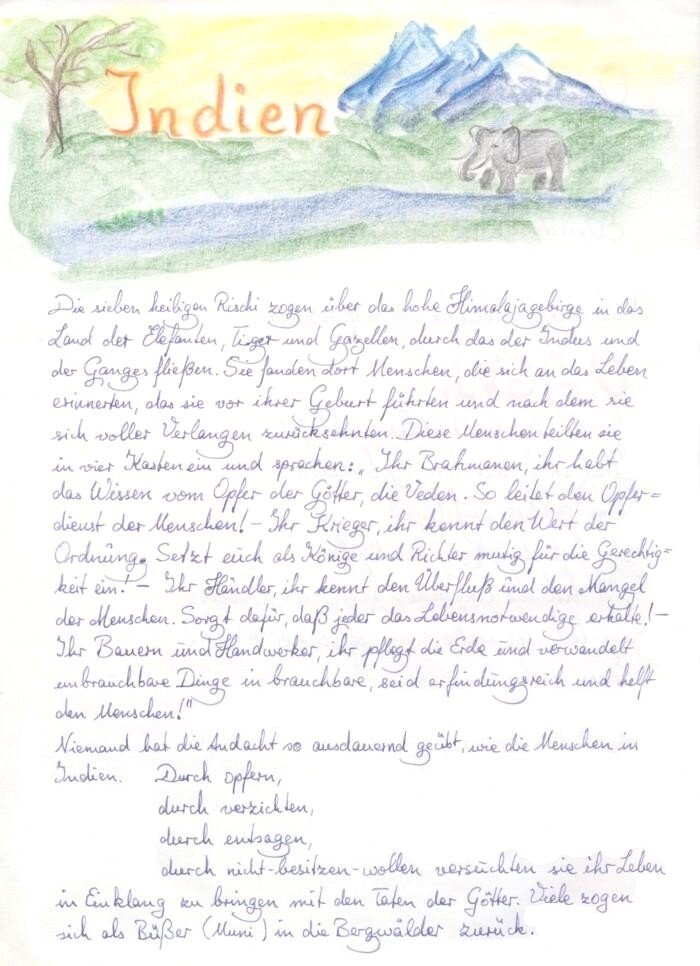 Indien
Die sieben heiligen Rischi zogen über das hohe Himalajagebirge in das
Land der Elefanten, Tiger und Gazellen, durch das der Indus und
der Ganges fließen. Sie fanden dort Menschen, die sich an das Leben
erinnerten, das sie vor ihrer Geburt führten und nach dem sie
sich voller Verlangen zurücksehnten. Diese Menschen teilten sie
in vier Kasten ein und sprachen: „Ihr Brahmanen, ihr habt
das Wissen vom Opfer der Götter, die Veden. So leitet den Opfer=
dienst der Menschen! – Ihr Krieger, ihr kennt den Wert der
Ordnung. Setzt euch als Könige und Richter mutig für die Gerechtig=
keit ein! – Ihr Händler, ihr kennt den Überfluß und den Mangel
der Menschen. Sorgt dafür, daß jeder das Lebensnotwendige erhalte! –
Ihr Bauern und Handwerker, ihr pflegt die Erde und verwandelt
unbrauchbare Dinge in brauchbare, seid erfindungsreich und helft
den Menschen!"
Niemand hat die Andacht so ausdauernd geübt, wie die Menschen in
Indien. Durch opfern,
durch verzichten,
durch entsagen,
durch nicht-besitzen-wollen versuchten sie ihr Leben
in Einklang zu bringen mit den Taten der Götter. Viele zogen
sich als Büßer (Muni) in die Bergwälder zurück.